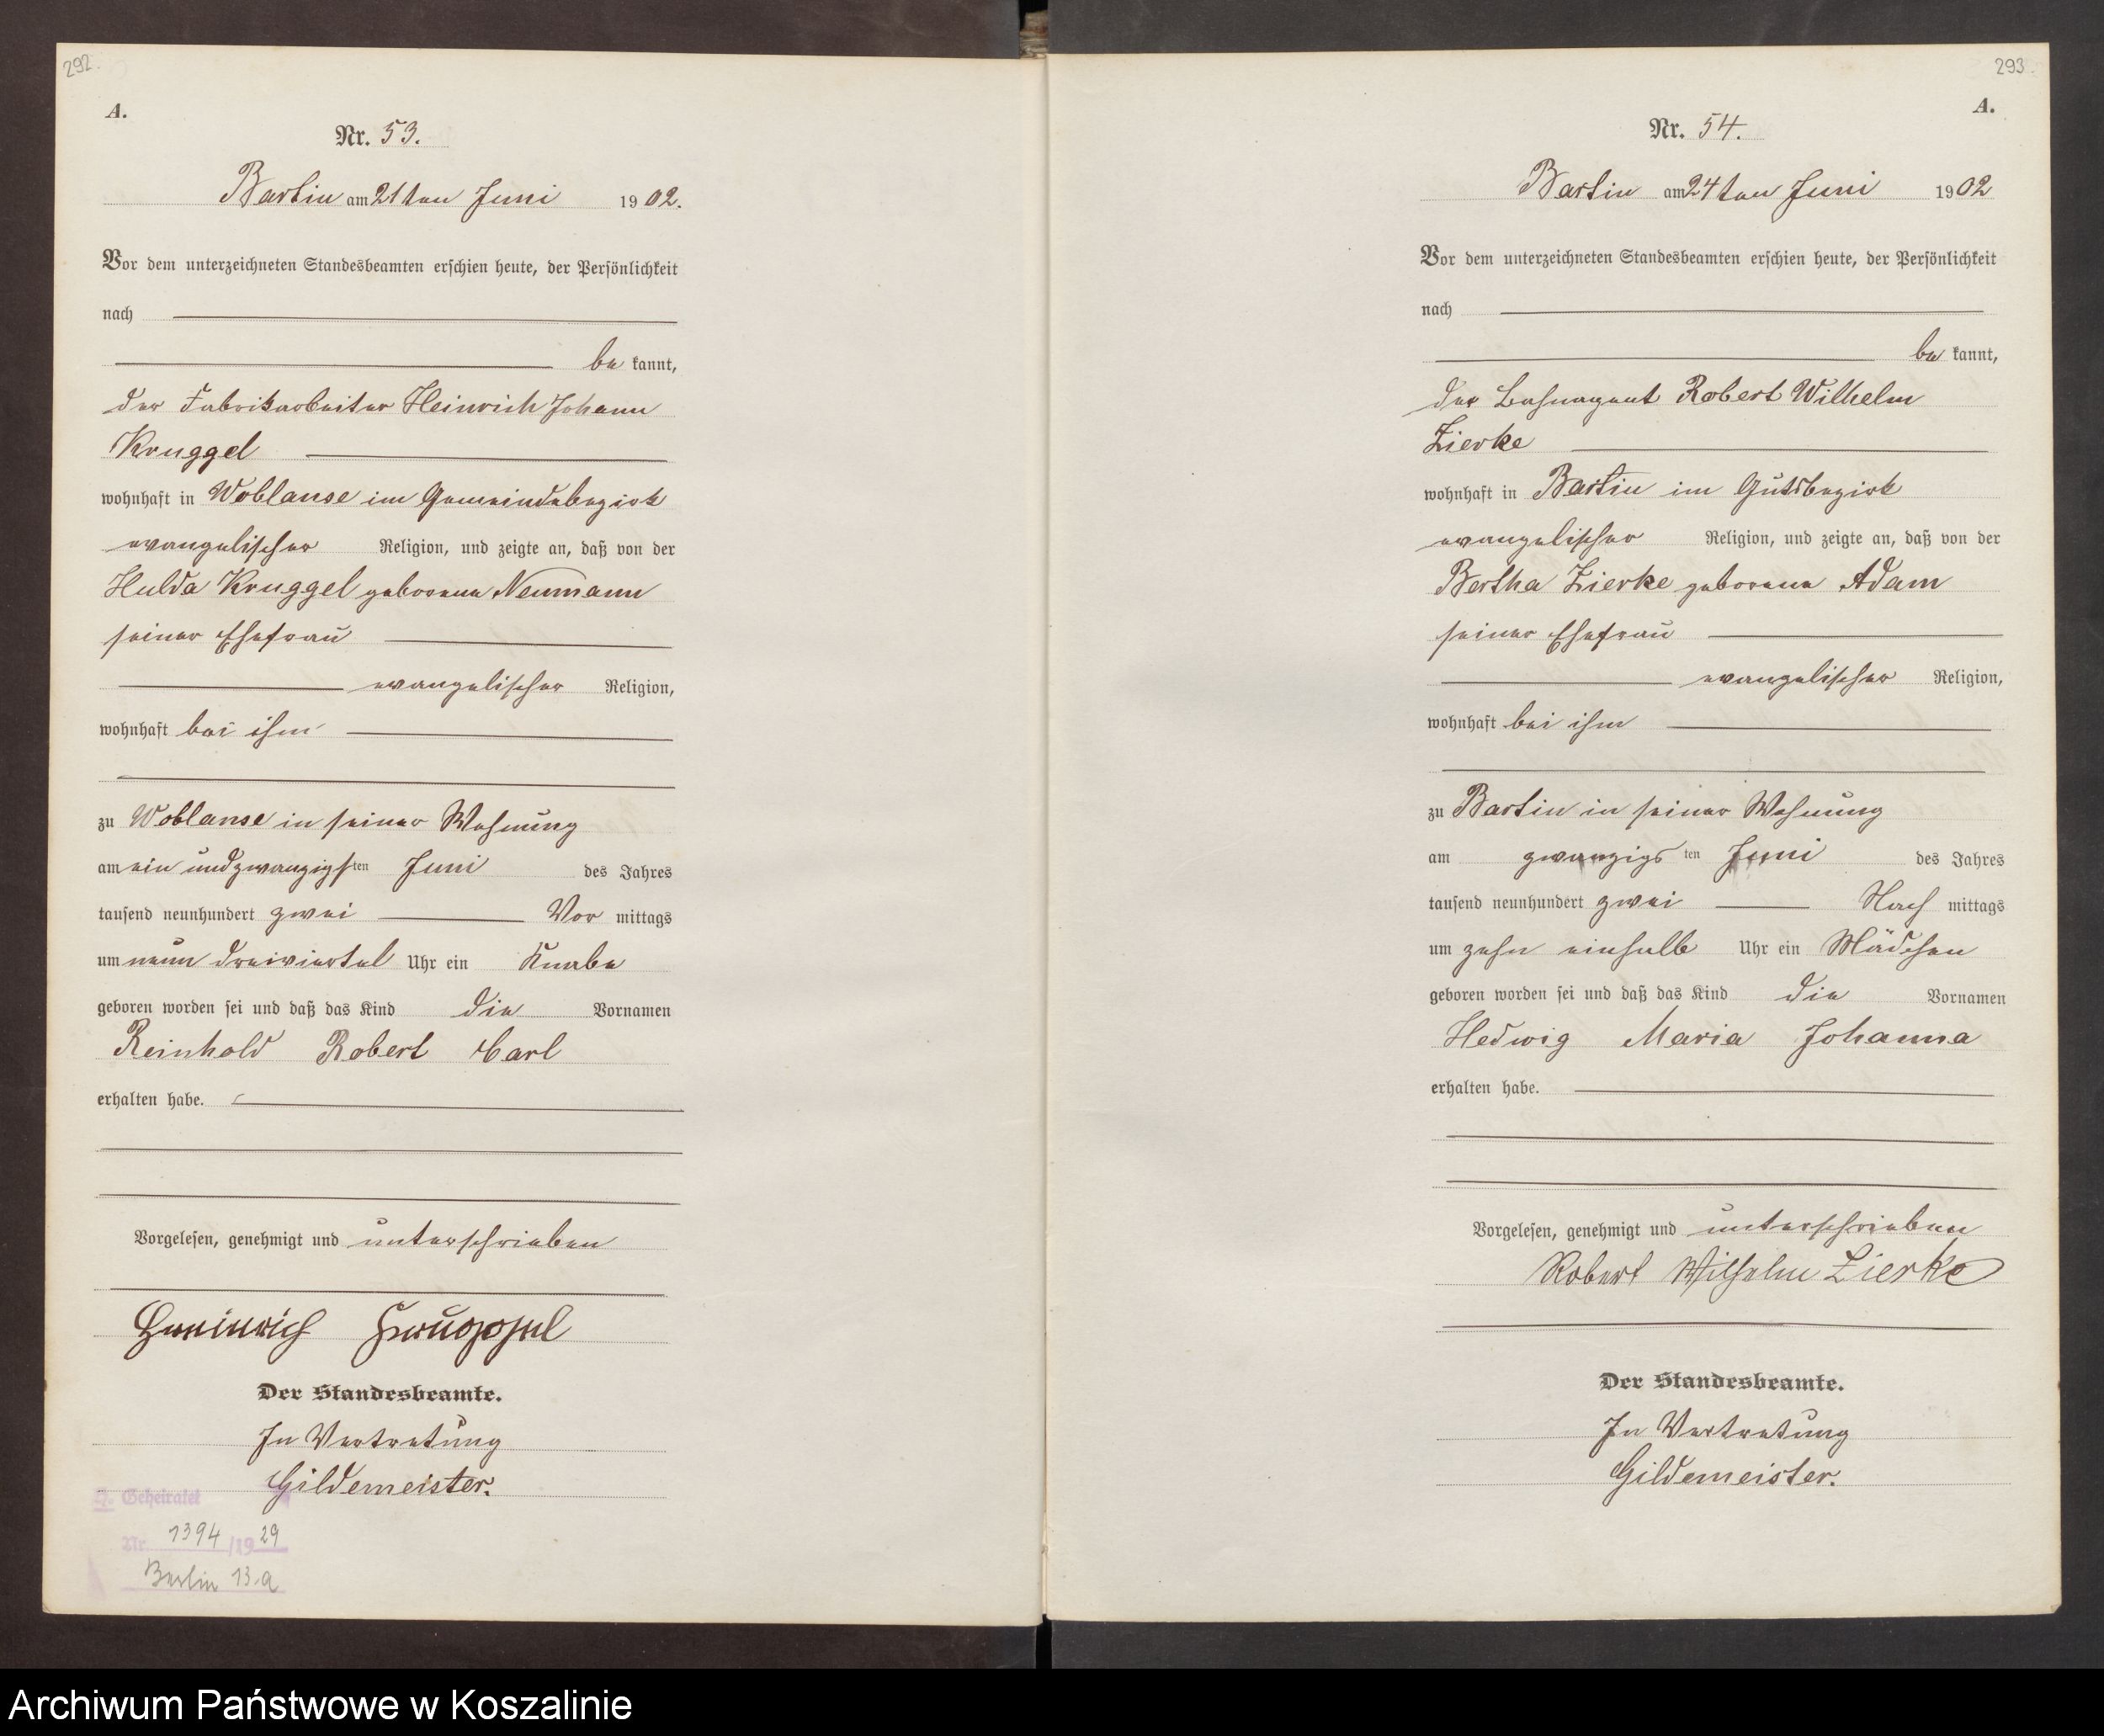 292.
A.
Nr. 53.
Bartin am 21ten Juni 1902.
Vor dem unterzeichneten Standesbeamten erschien heute, der Persönlichkeit
nach
be kannt,
der Fabrikarbeiter Heinrich Johann
Kruggel
wohnhaft in Woblanse im Gemeindebezirk
evangelischer Religion, und zeigte an, daß von der
Hulda Kruggel geborene Neumann
seiner Ehefrau
evangelischer Religion,
wohnhaft bei ihm
zu Woblanse in seiner Wohnung
am ein und zwanzigsten Juni des Jahres
tausend neunhundert zwei Vor mittags
um neun dreiviertel Uhr ein Knabe
geboren worden sei und daß das Kind die Vornamen
Reinhold Robert Carl
erhalten habe.
Vorgelesen, genehmigt und unterschrieben
Heinrich Kruggel
Der Standesbeamte.
In Vertretung
Gildemeister.
Geheiratet
Nr. 1394/1929
Berlin 13.a
293.
A.
Nr. 54.
Bartin am 24ten Juni 1902
Vor dem unterzeichneten Standesbeamten erschien heute, der Persönlichkeit
nach
be kannt,
der Bahnagent Robert Wilhelm
Zierke
wohnhaft in Bartin im Gutsbezirk
evangelischer Religion, und zeigte an, daß von der
Bertha Zierke geborene Adam
seiner Ehefrau
evangelischer Religion,
wohnhaft bei ihm
zu Bartin in seiner Wohnung
am zwanzigs ten Juni des Jahres
tausend neunhundert zwei Nach mittags
um zehn einhalb Uhr ein Mädchen
geboren worden sei und daß das Kind die Vornamen
Hedwig Maria Johanna
erhalten habe.
Vorgelesen, genehmigt und unterschrieben
Robert Wilhelm Zierke
Der Standesbeamte.
In Vertretung
Gildemeister.
Archiwum Państwowe w Koszalinie